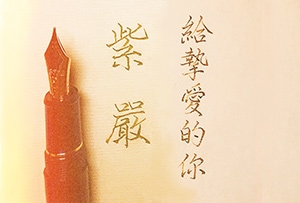 給摯愛的你
紫嚴